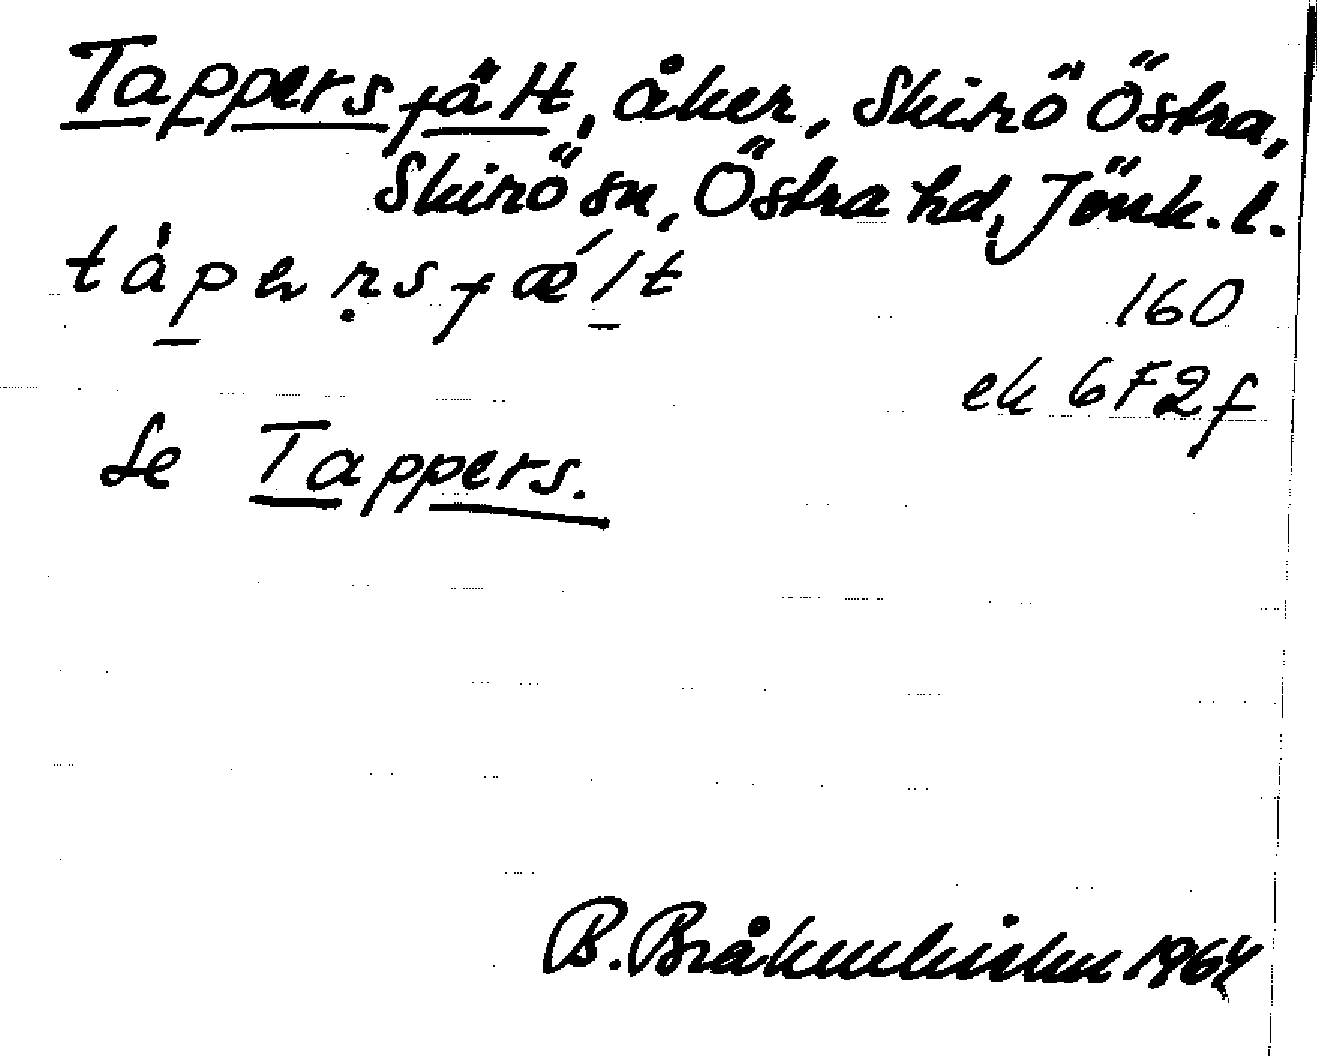 Tappersfält, åker, Skirö Östra,
Skirö sn, Östra hd, Jönk. l.
tàpeṛsfæ´lt
160
ek 6F2f
Se Tappers.
B. 1964